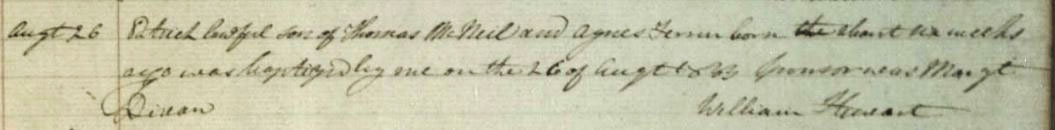 Augt 26 Patrick lawful son of Thomas McNeil and Agnes born the about six weeks
ago was baptized by me on the 26 of Augt Sponsor was Margt
William Stewart